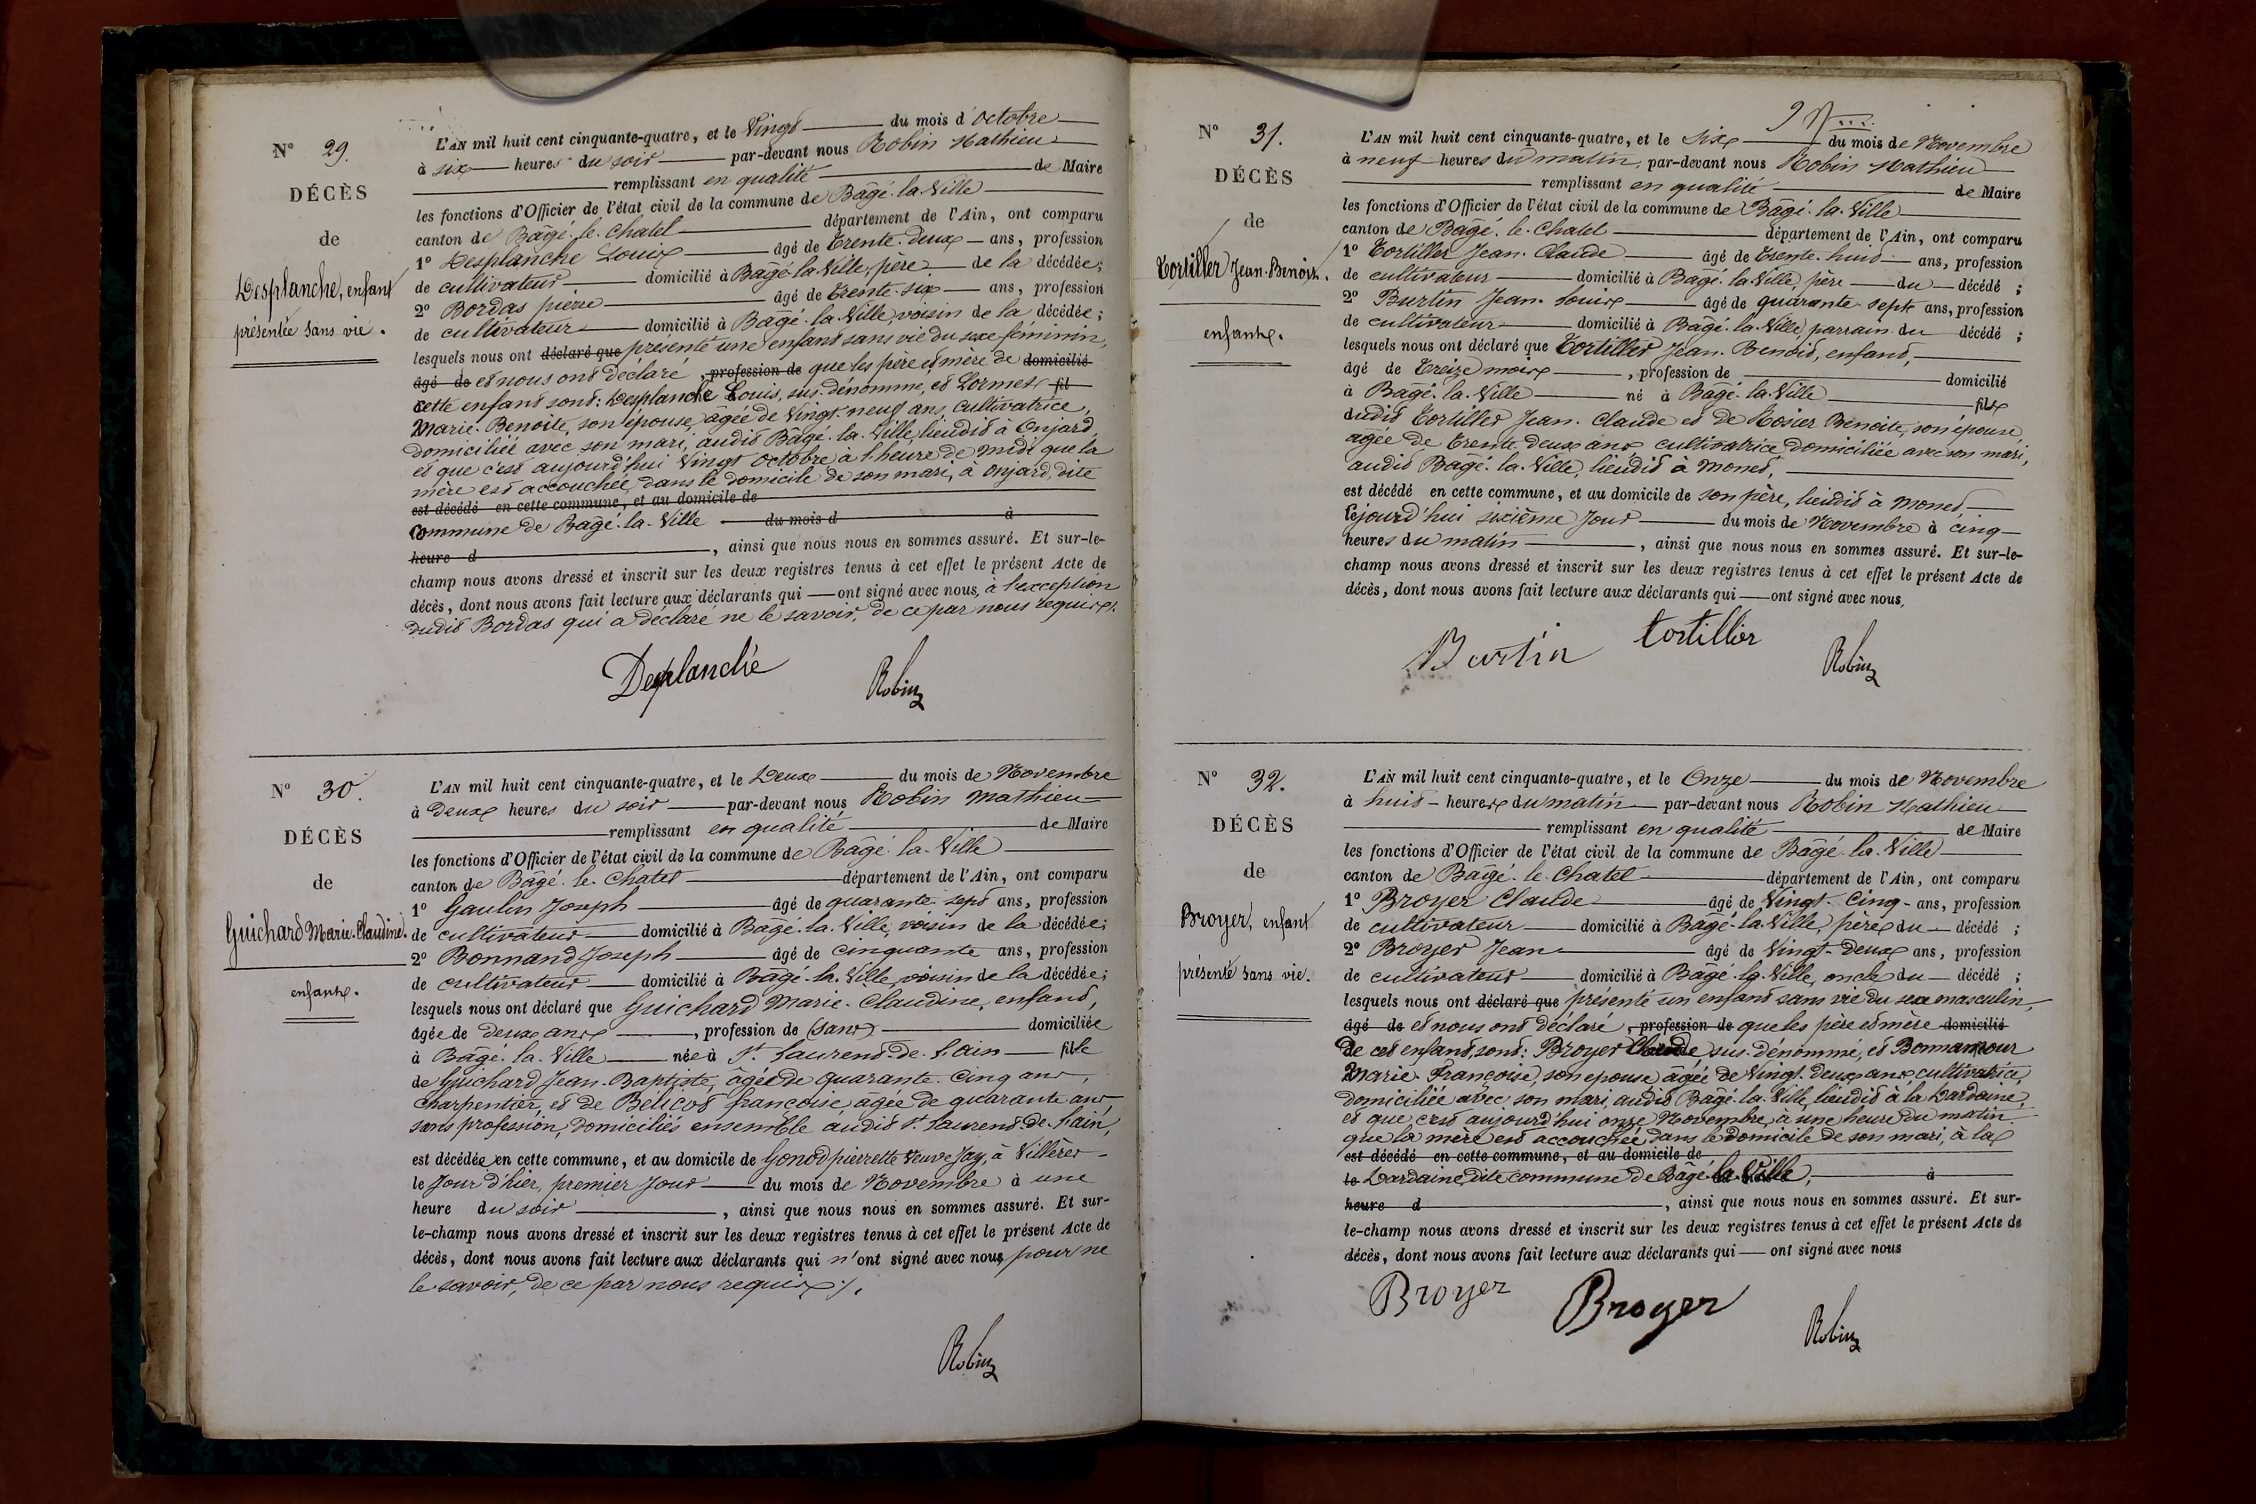 N° 29.
DÉCÈS
de
Desplanche, enfant
présentée sans vie.
L'AN mil huit cent cinquante-quatre, et le Vingt du mois d'Octobre
à six heures du soir par-devant nous Robin Mathieu
remplissant en qualité de Maire
les fonctions d'Officier de l'état civil de la commune de Bâgé-la-Ville
canton de Bâgé-le-Chatel département de l'Ain, ont comparu
1° Desplanche Louis âgé de Trente-deux ans, profession
de cultivateur domicilié à Bâgé-la-Ville, père de la décédée;
2° Bordas pierre âgé de Trente-six ans, profession
de cultivateur domicilié à Bâgé-la-Ville, voisin de la décédée;
lesquels nous ont déclaré que présenté une enfant sans vie du sexe féminin,
âgé de et nous ont déclaré, profession de que les père et mère de domicilié
cette enfant sont: Desplanche Louis, sus-dénommé, et Lormet fil
Marie-Benoite, son épouse, âgée de Vingt-neuf ans, Cultivatrice,
domiciliée avec son mari, audit Bâgé-la-Ville, lieudit à Onjard,
et que c'est aujourd'hui Vingt Octobre à l'heure de midi que la
mère est accouchée, dans le domicile de son mari, à Onjard, dite
est décédé en cette commune, et au domicile de
Commune de Bâgé-la-Ville du mois d à
heure d , ainsi que nous nous en sommes assuré. Et sur-le-
champ nous avons dressé et inscrit sur les deux registres tenus à cet effet le présent Acte de
décès, dont nous avons fait lecture aux déclarants qui ont signé avec nous, à l'exception
dudit Bordas qui a déclaré ne le savoir, de ce par nous requis.
Deplanche
Robin
N° 30.
DÉCÈS
de
Guichard Marie-Claudine.
enfant.
L'AN mil huit cent cinquante-quatre, et le Deux du mois de Novembre
à Deux heures du soir par-devant nous Robin Mathieu
remplissant en qualité de Maire
les fonctions d'Officier de l'état civil de la commune de Bâgé-la-Ville
canton de Bâgé-le-Chatel département de l'Ain, ont comparu
1° Gaulin Joseph âgé de quarante-sept ans, profession
de cultivateur domicilié à Bâgé-la-Ville, voisin de la décédée;
2° Bonnand Joseph âgé de cinquante ans, profession
de cultivateur domicilié à Bâgé-la-Ville, voisin de la décédée;
lesquels nous ont déclaré que Guichard Marie-Claudine, enfant,
âgée de deux ans, profession de (sans) domiciliée
à Bâgé-la-Ville née à St. Laurent-de-l'ain fille
de Guichard Jean-Baptiste, âgée de quarante-cinq ans,
charpentier, et de Belicot françoise âgée de quarante ans,
sans profession, domiciliés ensemble audit St. Laurent-de-l'ain,
est décédée en cette commune, et au domicile de Gonod pierrette Veuve Jay, à Villères
le Jour d'hier, premier Jour du mois de Novembre à une
heure du soir , ainsi que nous nous en sommes assuré. Et sur-
le-champ nous avons dressé et inscrit sur les deux registres tenus à cet effet le présent Acte de
décès, dont nous avons fait lecture aux déclarants qui n'ont signé avec nous pour ne
le savoir, de ce par nous requis.
Robin
N° 31.
DÉCÈS
de
Tortiller Jean-Benoit.
enfant.
L'AN mil huit cent cinquante-quatre, et le Six du mois de Novembre
à neuf heures du matin, par-devant nous Robin Mathieu
remplissant en qualité de Maire
les fonctions d'Officier de l'état civil de la commune de Bâgé-la-Ville
canton de Bâgé-le-Chatel département de l'Ain, ont comparu
1° Tortiller Jean-Claude âgé de Trente-huit ans, profession
de cultivateur domicilié à Bâgé-la-Ville, père du décédé;
2° Burtin Jean-Louis âgé de quarante-sept ans, profession
de cultivateur domicilié à Bâgé-la-Ville, parrain du décédé;
lesquels nous ont déclaré que Tortiller Jean-Benoit, enfant,
âgé de Treize mois, profession de domicilié
à Bâgé-la-Ville né à Bâgé-la-Ville fils
dudit Tortiller Jean-Claude et de Rosier Benoite, son épouse
âgée de Trente-deux ans, cultivatrice domiciliée avec son mari,
audit Bâgé-la-Ville, lieudit à Monet,
est décédé en cette commune, et au domicile de son père, lieudit à Monet,
Cejourd'hui sixième Jour du mois de Novembre à cinq
heures du matin , ainsi que nous nous en sommes assuré. Et sur-le-
champ nous avons dressé et inscrit sur les deux registres tenus à cet effet le présent Acte de
décès, dont nous avons fait lecture aux déclarants qui ont signé avec nous,
Burtin
tortillier
Robin
N° 32.
DÉCÈS
de
Broyer, enfant
présenté sans vie.
L'AN mil huit cent cinquante-quatre, et le Onze du mois de Novembre
à huit heures du matin par-devant nous Robin Mathieu
remplissant en qualité de Maire
les fonctions d'Officier de l'état civil de la commune de Bâgé-la-Ville
canton de Bâgé-le-Chatel département de l'Ain, ont comparu
1° Broyer Claude âgé de Vingt-Cinq ans, profession
de cultivateur domicilié à Bâgé-la-Ville, père du décédé;
2° Broyer Jean âgé de Vingt-Deux ans, profession
de cultivateur domicilié à Bâgé-la-Ville, oncle du décédé;
lesquels nous ont déclaré que présenté un enfant sans vie du sexe masculin,
âgé de et nous ont déclaré, profession de que les père et mère domicilié
de cet enfant, sont: Broyer Claude, sus-dénommé, et Bonnamour
Marie-Françoise, son épouse âgée de Vingt-deux ans, cultivatrice,
domiciliée avec son mari, audit Bâgé-la-Ville, lieudit à la Dardaine,
et que c'est aujourd'hui onze Novembre, à une heure du matin
que la mère est accouchée, dans le domicile de son mari, à la
est décédé en cette commune, et au domicile de
le Dardaine, dite commune de Bâgé-la-Ville, à
heure d , ainsi que nous nous en sommes assuré. Et sur-
le-champ nous avons dressé et inscrit sur les deux registres tenus à cet effet le présent Acte de
décès, dont nous avons fait lecture aux déclarants qui ont signé avec nous
Broyer
Broyer
Robin